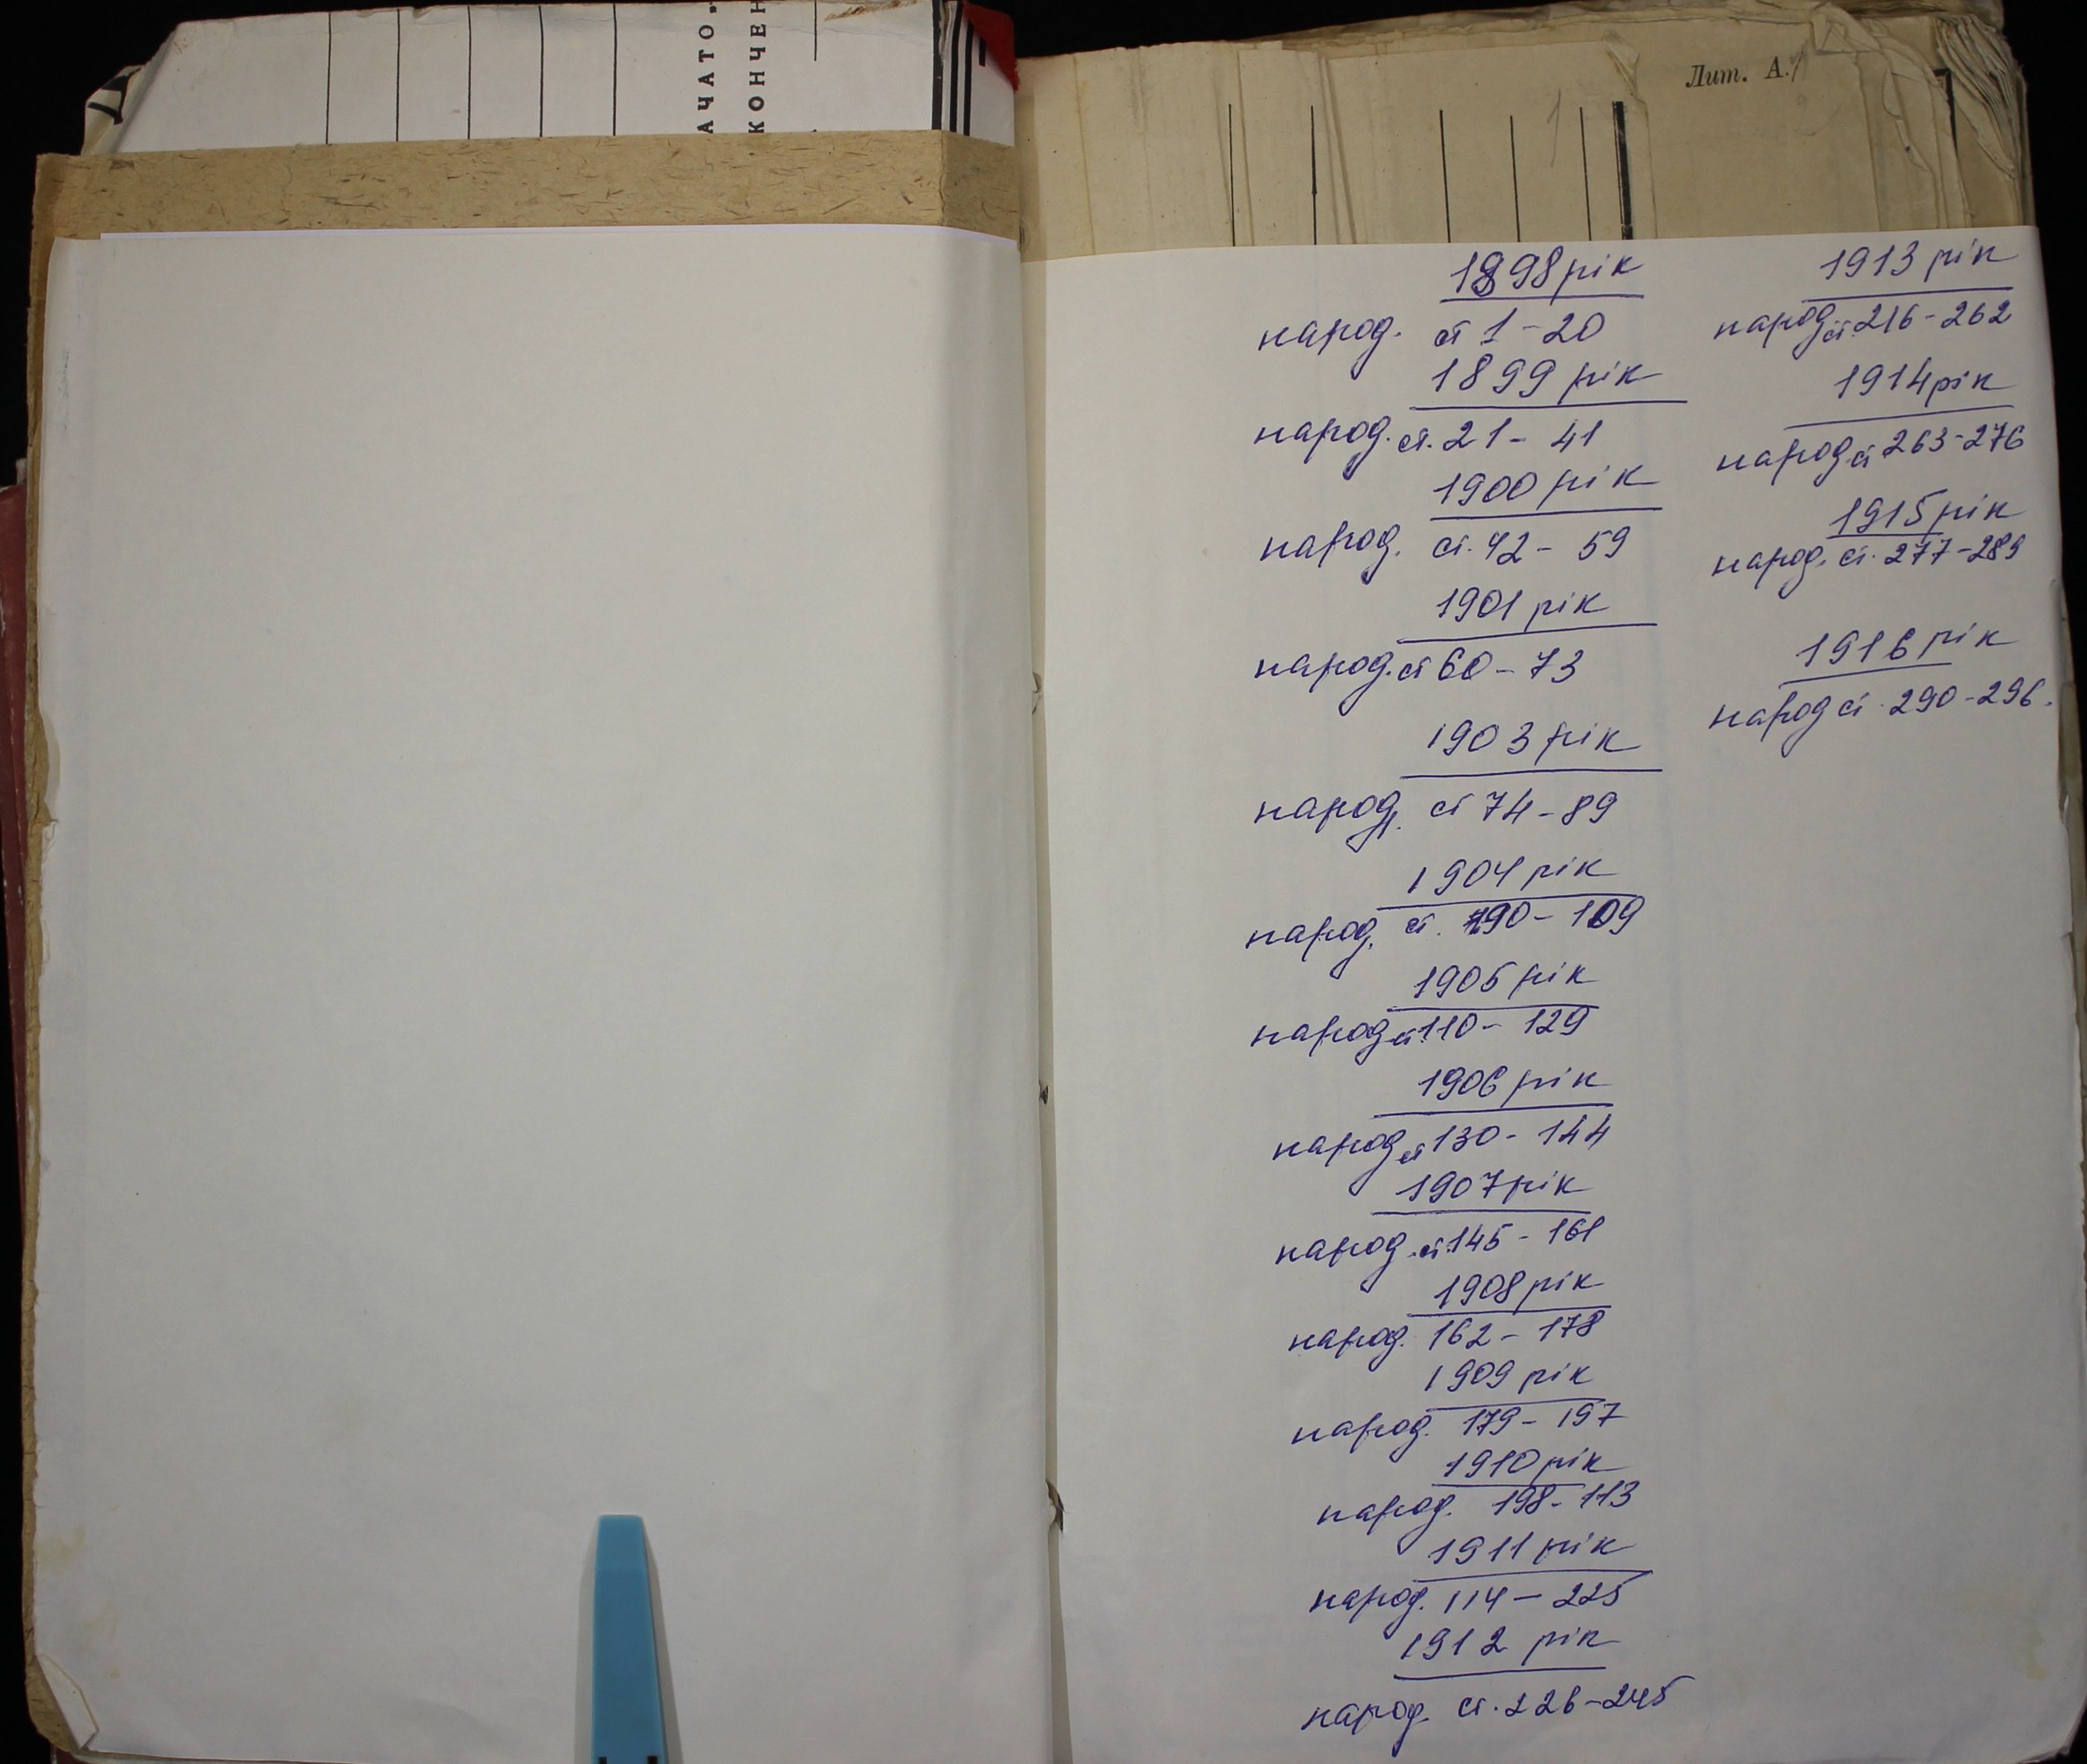 АЧАТО
КОНЧЕН
Лит. А.
1898 рік
народ. ст 1-20
1899 рік
народ. ст. 21-41
1900 рік
народ. ст. 42-59
1901 рік
народ. ст 60-73
1903 рік
народ. ст 74-89
1904 рік
народ. ст. 90-109
1905 рік
народ ст. 110-129
1906 рік
народ ст 130-144
1907 рік
народ. ст. 145-161
1908 рік
народ. 162-178
1909 рік
народ. 179-197
1910 рік
народ. 198-113
1911 рік
народ. 114-225
1912 рік
народ. ст. 226-245
1913 рік
народ. ст. 216-262
1914 рік
народ. ст 263-276
1915 рік
народ. ст. 277-289
1916 рік
народ ст. 290-296.